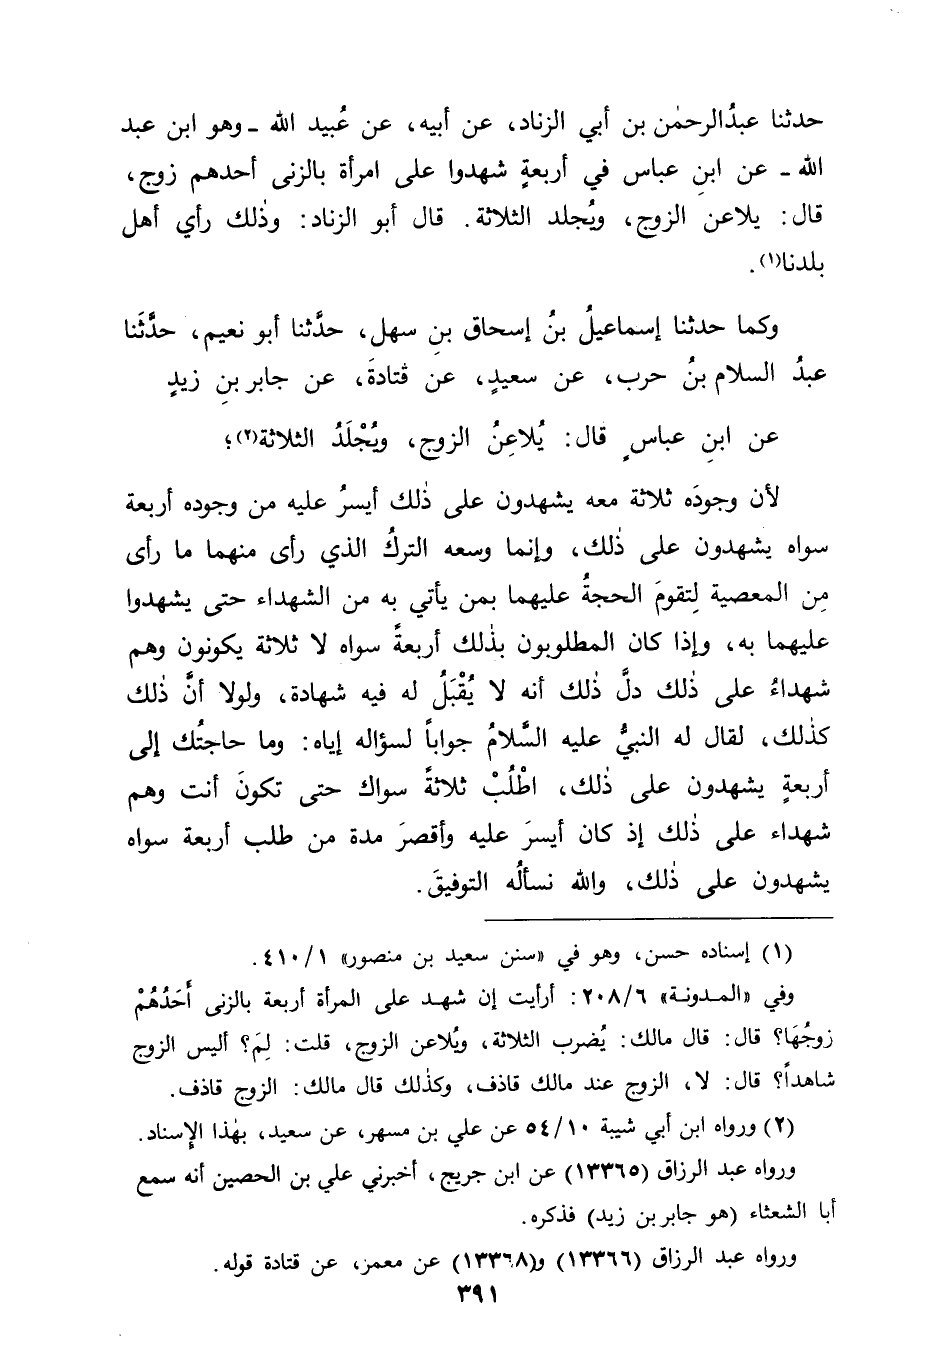 حدثنا عبدُالرحمٰن بن أبي الزناد، عن أبيه، عن عُبيد الله ـ وهو ابن عبد
الله ـ عن ابنِ عباس في أربعةٍ شهدوا على امرأة بالزنى أحدهم زوج،
قال: يلاعن الزوج، ويُجلد الثلاثة. قال أبو الزناد: وذٰلك رأي أهل
بلدنا(١).
وكما حدثنا إسماعيلُ بنُ إسحاق بنِ سهل، حدَّثنا أبو نعيم، حدَّثَنا
عبدُ السلام بنُ حرب، عن سعيدٍ، عن قتادةَ، عن جابر بنِ زيدٍ
عن ابنِ عباسٍ قال: يُلاعِنُ الزوج، ويُجْلَدُ الثلاثة(٢)؛
لأن وجودَه ثلاثة معه يشهدون على ذٰلك أيسرُ عليه من وجوده أربعة
سواه يشهدون على ذٰلك، وإنما وسعه التركُ الذي رأى منهما ما رأى
مِن المعصية لِتقومَ الحجةُ عليهما بمن يأتي به من الشهداء حتى يشهدوا
عليهما به، وإذا كان المطلوبون بذٰلك أربعةً سواه لا ثلاثة يكونون وهم
شهداءُ على ذٰلك دلَّ ذٰلك أنه لا يُقْبَلُ له فيه شهادة، ولولا أنَّ ذٰلك
كذٰلك، لقال له النبيُّ عليه السَّلامُ جواباً لسؤاله إياه: وما حاجتُك إلى
أربعةٍ يشهدون على ذٰلك، اطْلُبْ ثلاثةً سواك حتى تكونَ أنت وهم
شهداء على ذٰلك إذ كان أيسرَ عليه وأقصرَ مدة من طلب أربعة سواه
يشهدون على ذٰلك، والله نسألُه التوفيقَ.
(١) إسناده حسن، وهو في «سنن سعيد بن منصور» ٤١٠/١.
وفي «المدونة» ٢٠٨/٦: أرأيت إن شهد على المرأة أربعة بالزنى أَحَدُهُمْ
زوجُهَا؟ قال: قال مالك: يُضرب الثلاثة، ويُلاعن الزوج، قلت: لِمَ؟ أليس الزوج
شاهداً؟ قال: لا، الزوج عند مالك قاذف، وكذٰلك قال مالك: الزوج قاذف.
(٢) ورواه ابن أبي شيبة ٥٤/١٠ عن علي بن مسهر، عن سعيد، بهٰذا الإسناد.
ورواه عبد الرزاق (١٣٣٦٥) عن ابن جريج، أخبرني علي بن الحصين أنه سمع
أبا الشعثاء (هو جابر بن زيد) فذكره.
ورواه عبد الرزاق (١٣٣٦٦) و(١٣٣٦٨) عن معمر، عن قتادة قوله.
٣٩١